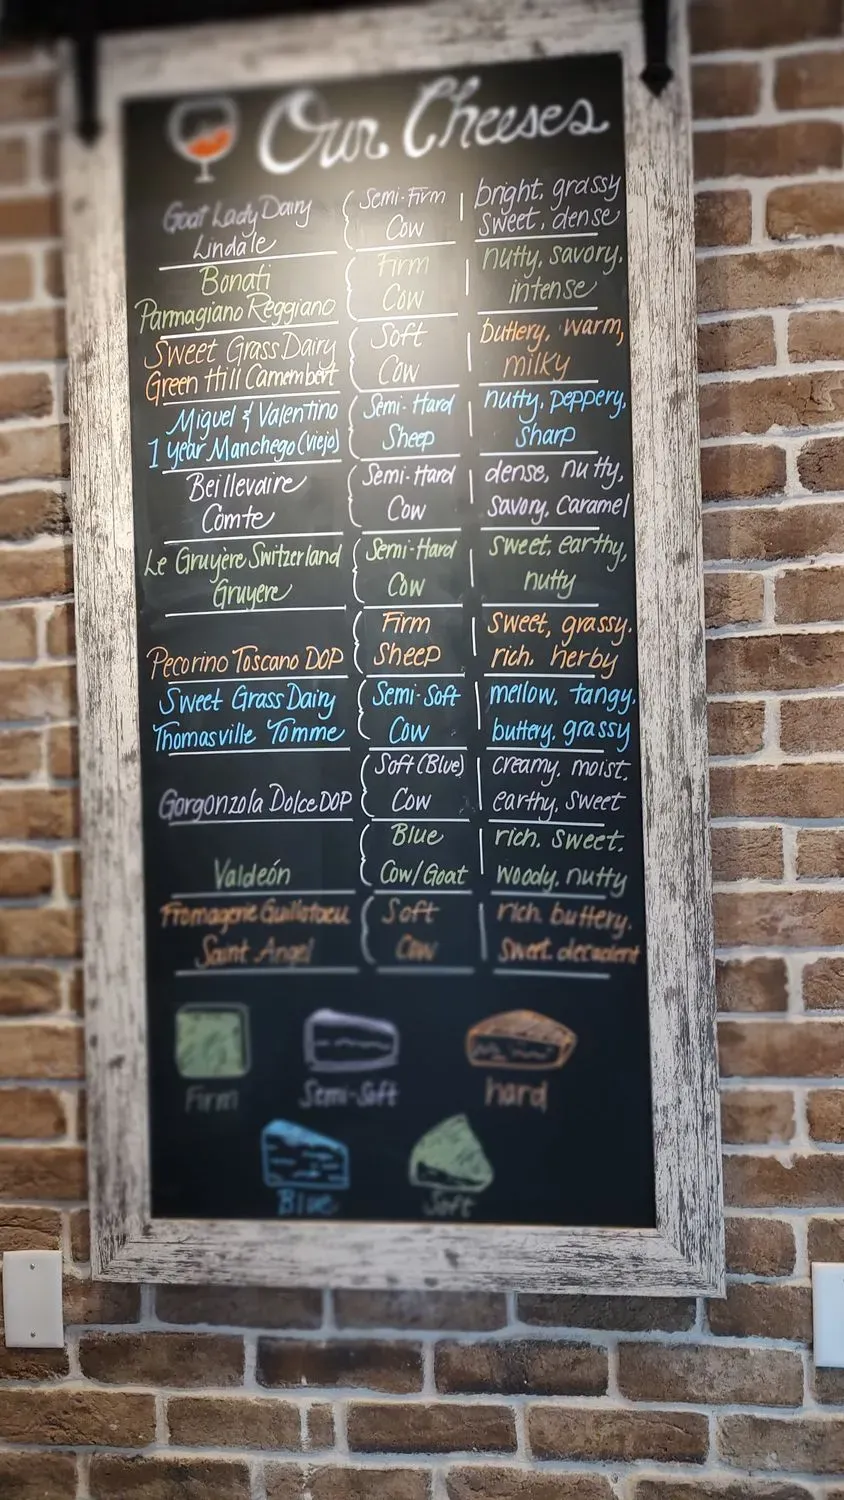 Our Cheeses
Goat Lady Dairy
Lindale
Semi-Firm
Cow
bright, grassy
sweet, dense
Bonati
Parmagiano Reggiano
Firm
Cow
nutty, savory,
intense
Sweet Grass Dairy
Green Hill Camembert
Soft
Cow
buttery, warm,
milky
Miguel & Valentino
1 year Manchego (Viejo)
Semi-Hard
Sheep
nutty, peppery,
sharp
Beillevaire
Comte
Semi-Hard
Cow
dense, nutty,
savory, caramel
Le Gruyère Switzerland
Gruyere
Semi-Hard
Cow
sweet, earthy,
nutty
Pecorino Toscano DOP
Firm
Sheep
sweet, grassy,
rich, herby
Sweet Grass Dairy
Thomasville Tomme
Semi-Soft
Cow
mellow, tangy,
buttery, grassy
Gorgonzola Dolce DOP
Soft (Blue)
Cow
creamy, moist,
earthy, sweet
Valdeón
Blue
Cow/Goat
rich, sweet,
woody, nutty
Fromagerie Guilloteau
Saint Angel
Soft
Cow
rich, buttery,
sweet, decadent
Firm
Semi-Soft
hard
Blue
Soft